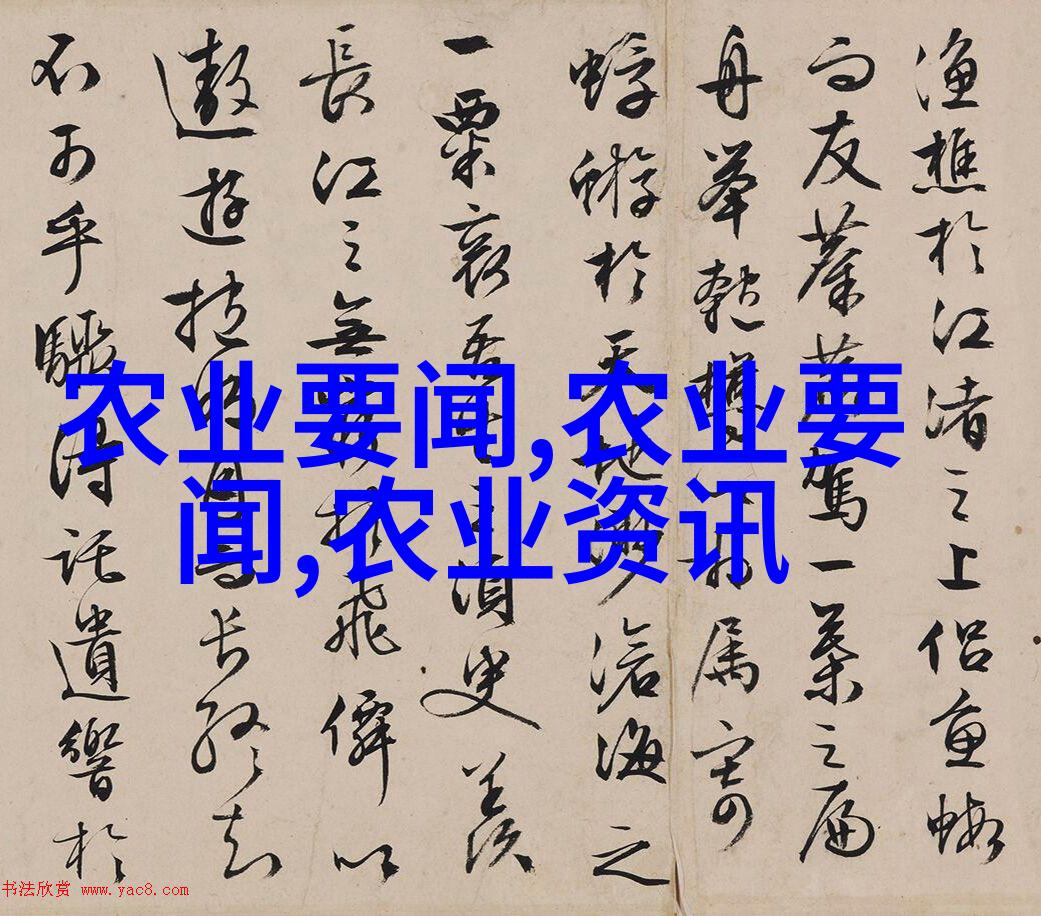 漁樵於江渚之上侶魚蝦
而友麋鹿駕一葉之扁
舟舉匏樽以相属寄
蜉蝣於天地渺滄海之
一粟哀吾生之須臾羨
長江之無窮挾飛僊以
遨遊抱明月而長終知
不可乎驟得託遺響於
农业要闻,农业要
闻,农业资讯
书法欣赏 www.yac8.com